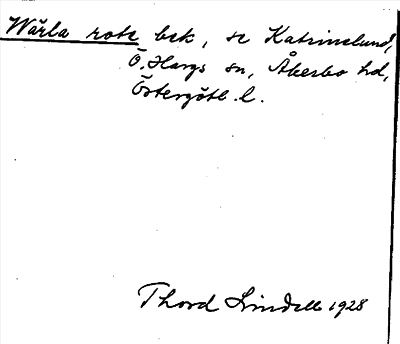 Wärla rote bek, se Katrinelund,
Ö. Hargs sn, Åkerbo hd,
Östergötl. l.
Thord Lindell 1928